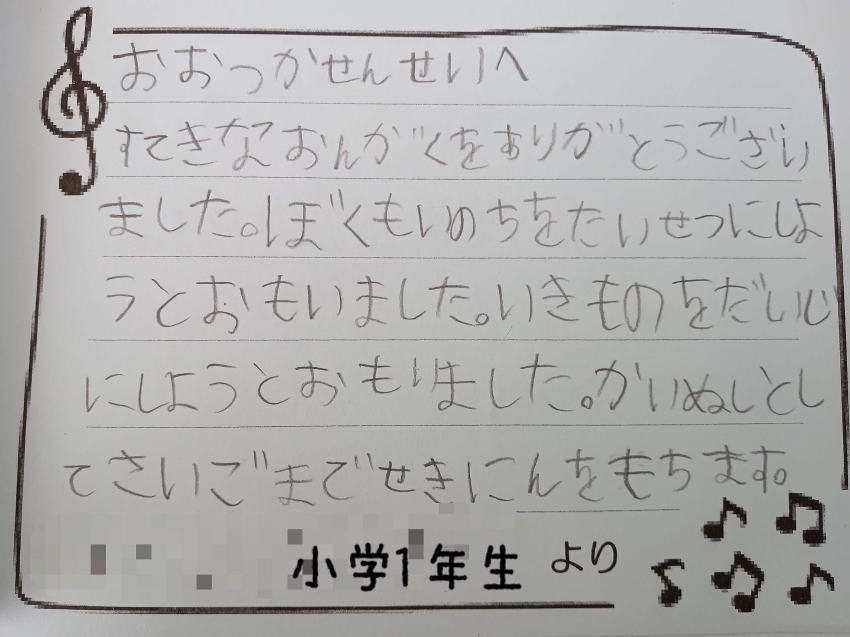 おおつかせんせいへ
すてきなおんがくをありがとうござい
ました。ぼくもいのちをたいせつにしよ
うとおもいました。いきものをだいじ
にしようとおもいました。かいぬしとし
てさいごまでせきにんをもちます。
小学1年生 より